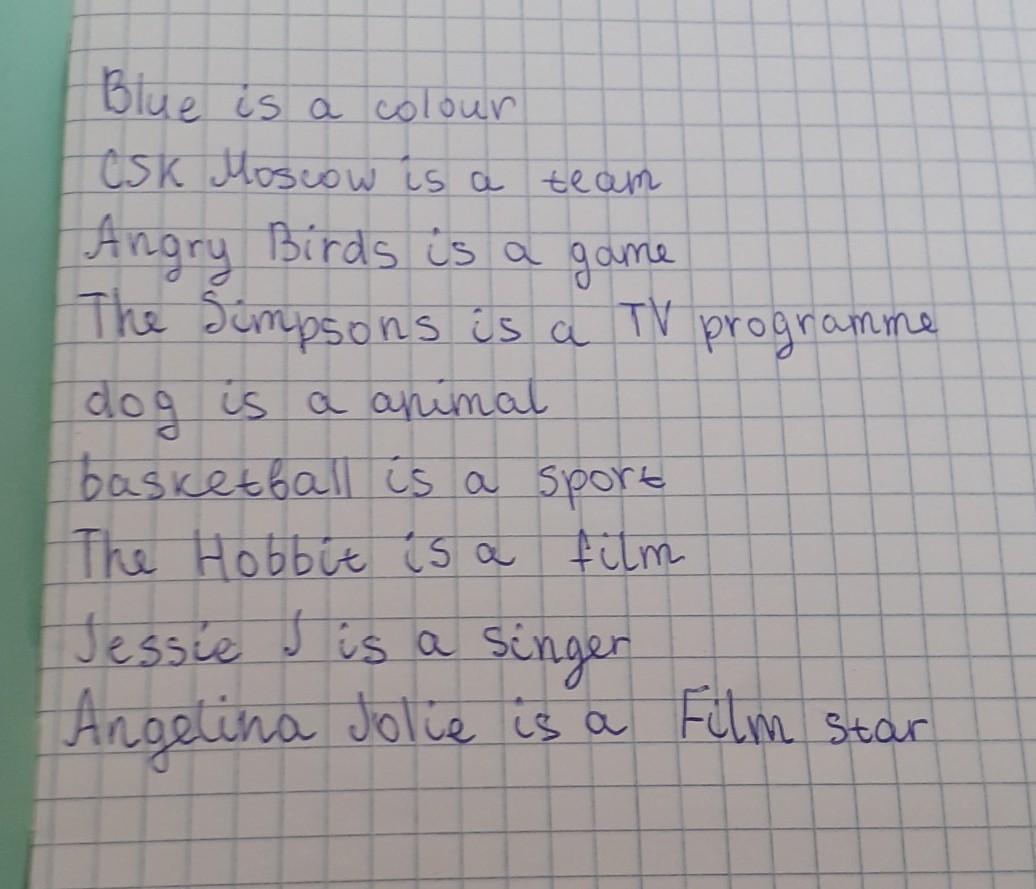 Blue is a colour
CSK Moscow is a team
Angry Birds is a game
The Simpsons is a TV programme
dog is a animal
basketball is a sport
The Hobbit is a film
Jessie J is a singer
Angelina Jolie is a Film star